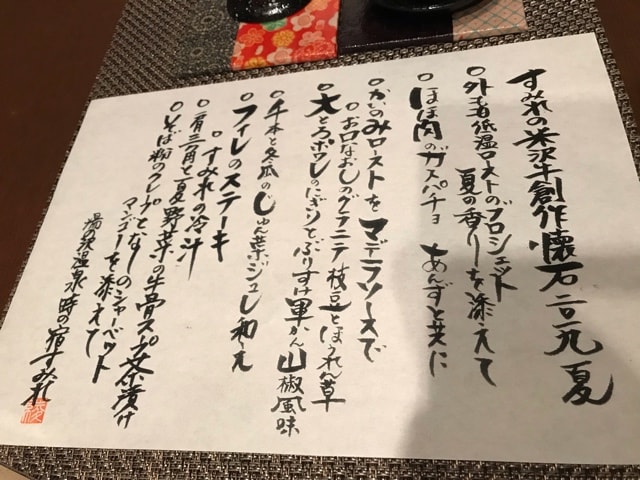 すみれの米沢牛創作懐石二〇一九 夏
○外もも低温ローストのブロシェット
夏の香りを添えて
○ほほ肉のガスパチョ あんずと共に
○かいのみローストをマデラソースで
○お口なおしのグラニテ 枝豆とほうれん草
○大とろポワレのにぎりとぶりすけ軍かん 山椒風味
○千本と冬瓜のじゅん菜ジュレ和え
○フィレのステーキ
○すみれの冷汁
○肩三角と夏野菜の牛骨スープ茶漬け
○そば粉のクレープとなしのシャーベット
マンゴーを添えて
湯の沢温泉 時の宿すみれ